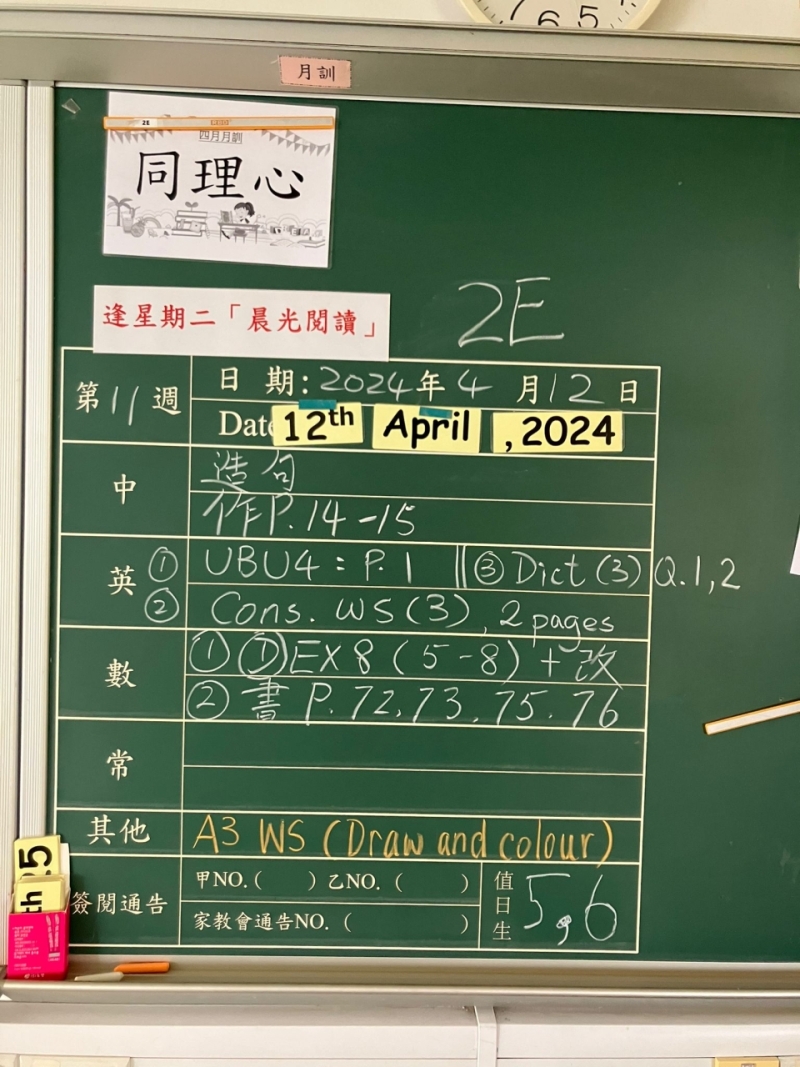 6 5
月訓
2E
四月月訓
同理心
逢星期二「晨光閱讀」
2E
第11週 日 期:2024年4月12日
Date 12th April , 2024
中 造句
作P.14-15
英 ① UBU4 : P.1 ‖③ Dict (3) Q.1,2
② Cons. WS(3), 2 pages
數 ① ①EX8 (5-8) + 改
② 書 P.72,73,75.76
常
其他 A3 WS (Draw and colour)
簽閱通告 甲NO.( ) 乙NO. ( ) 值日生 5,6
家教會通告NO. ( )